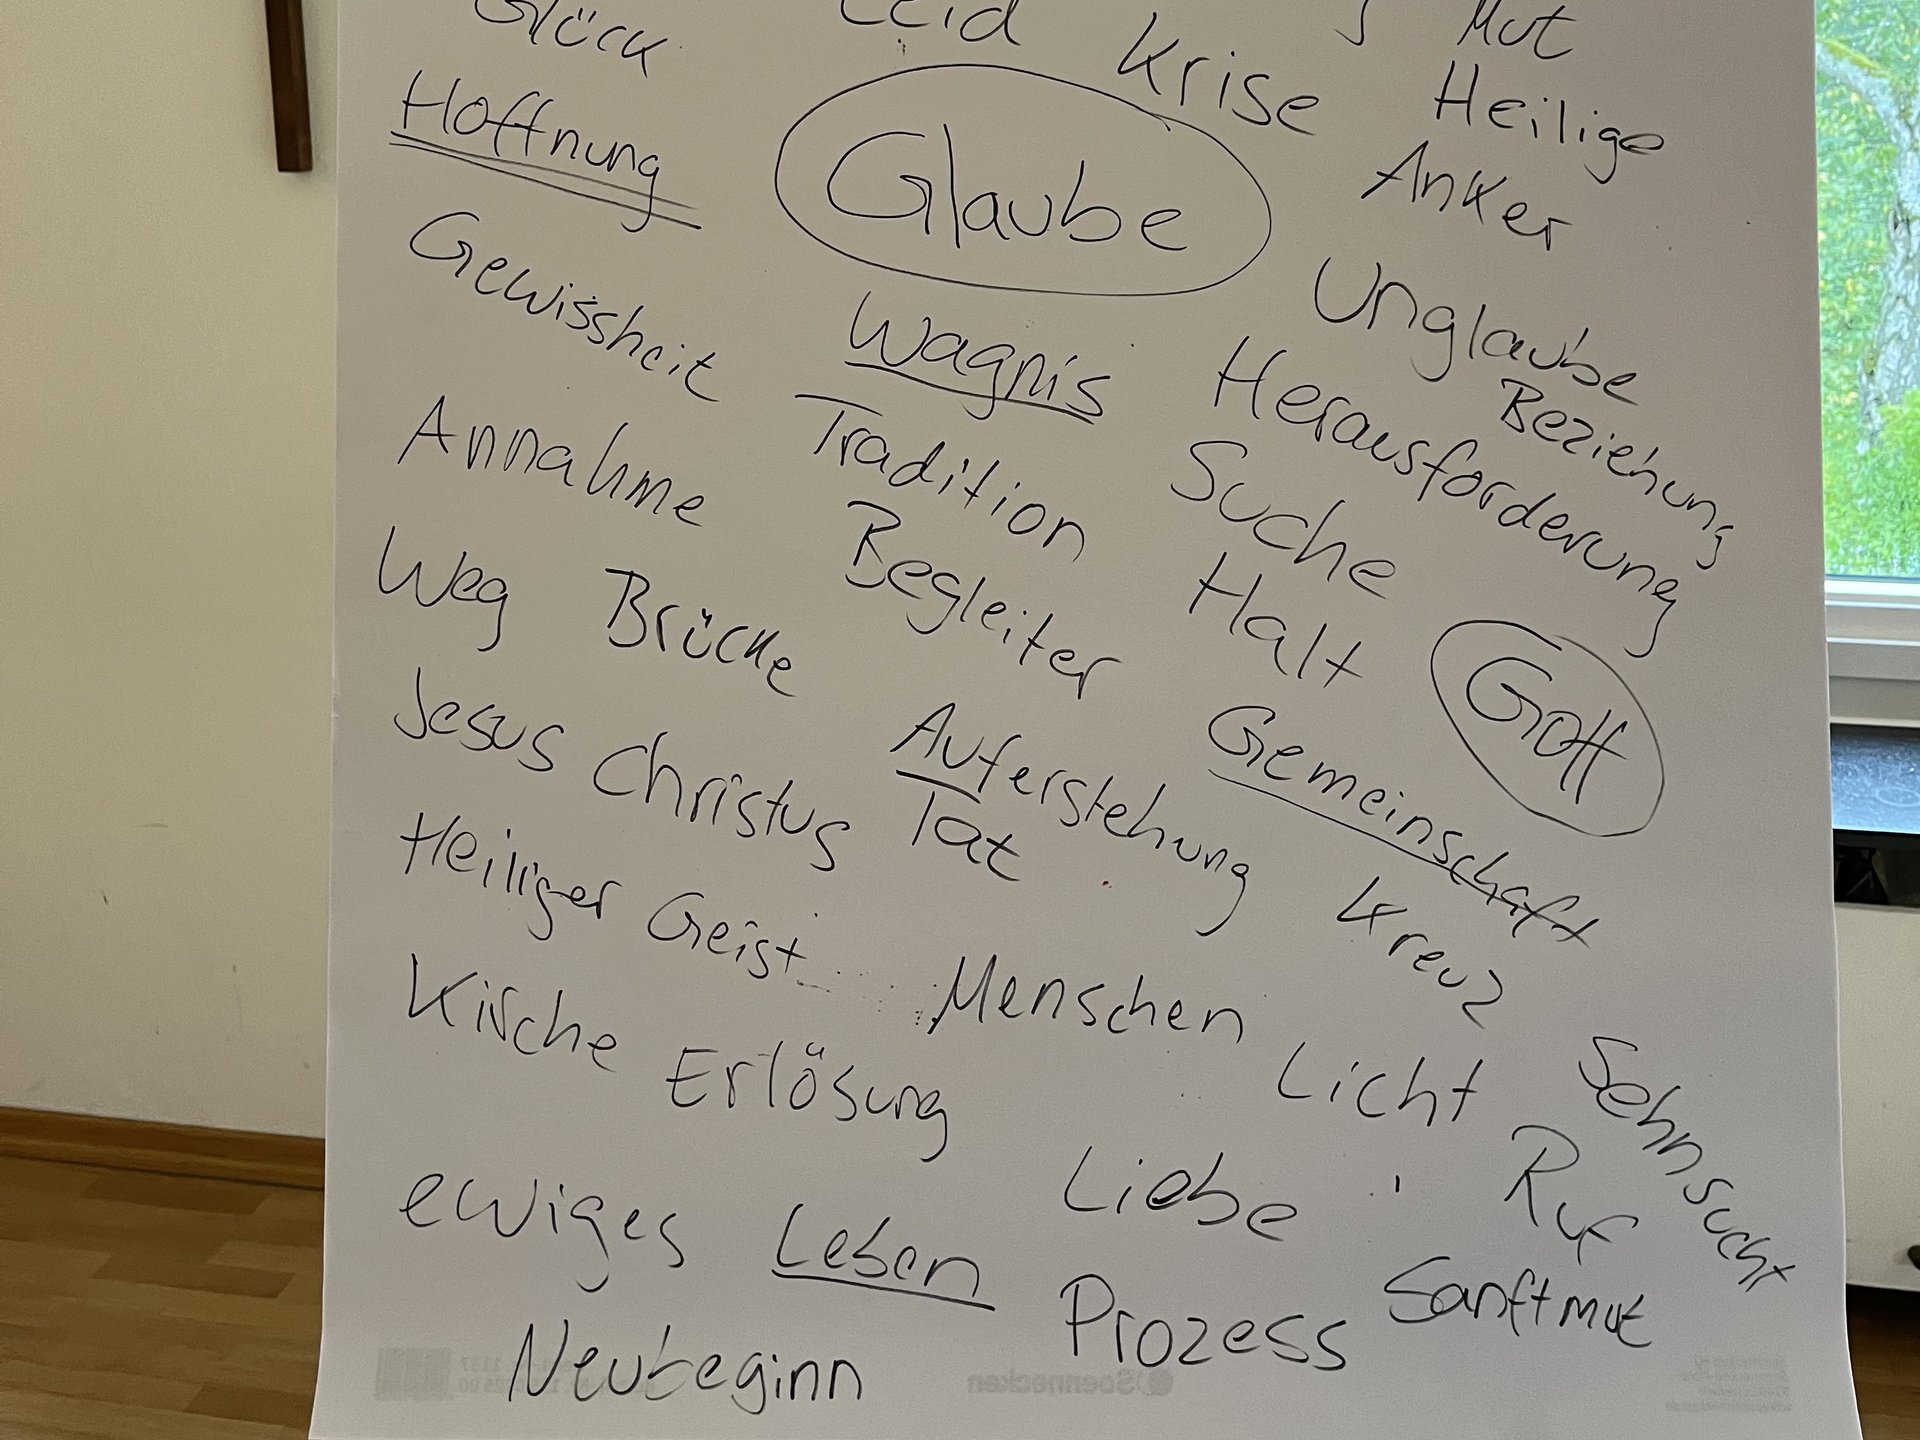 Glück
Leid
Mut
Krise
Heilige
Hoffnung
Glaube
Anker
Gewissheit
Wagnis
Unglaube
Beziehung
Herausforderung
Annahme
Tradition
Suche
Weg
Brücke
Begleiter
Halt
Gott
Jesus Christus
Auferstehung
Gemeinschaft
Tat
Heiliger Geist
Kreuz
Kirche
Menschen
Erlösung
Licht
Sehnsucht
ewiges Leben
Liebe
Ruf
Neubeginn
Prozess
Sanftmut
Soennecken